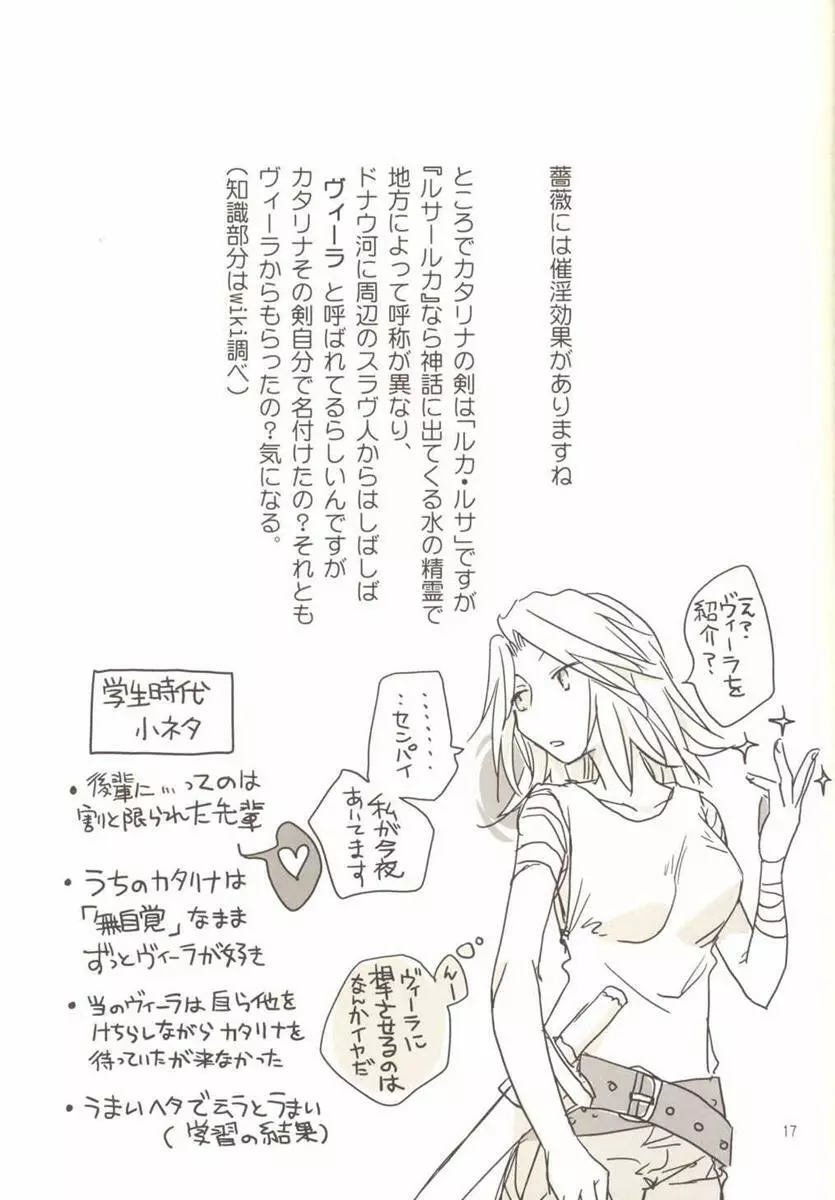 薔薇には催淫効果がありますね
ところでカタリナの剣は「ルカ・ルサ」ですが
『ルサールカ』なら神話に出てくる水の精霊で
地方によって呼称が異なり、
ドナウ河に周辺のスラヴ人からはしばしば
ヴィーラ と呼ばれてるらしいんですが
カタリナその剣自分で名付けたの？それとも
ヴィーラからもらったの？気になる。
（知識部分はwiki調べ）
え？
ヴィーラを
紹介？
・・・・・・・
・・センパイ
私が今夜
あいてます
んー
ヴィーラに
相手させるのは
なんかイヤだ
学生時代
小ネタ
・後輩に…ってのは
割と限られた先輩
・うちのカタリナは
「無自覚」なまま
ずっとヴィーラが好き
・当のヴィーラは自ら他を
けちらしながらカタリナを
待っていたが来なかった
・うまいヘタで云うとうまい
（学習の結果）
17